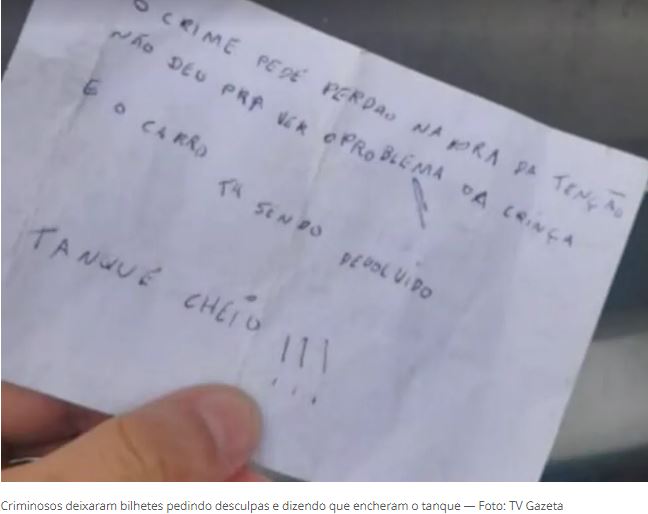 O CRIME PEDE PERDAO NA HORA DA TENÇÃO
NÃO DEU PRA VER O PROBLEMA DA CRINÇA
E O CARRO TA SENDO DEVOLVIDO
TANQUE CHEIO !!!
Criminosos deixaram bilhetes pedindo desculpas e dizendo que encheram o tanque — Foto: TV Gazeta